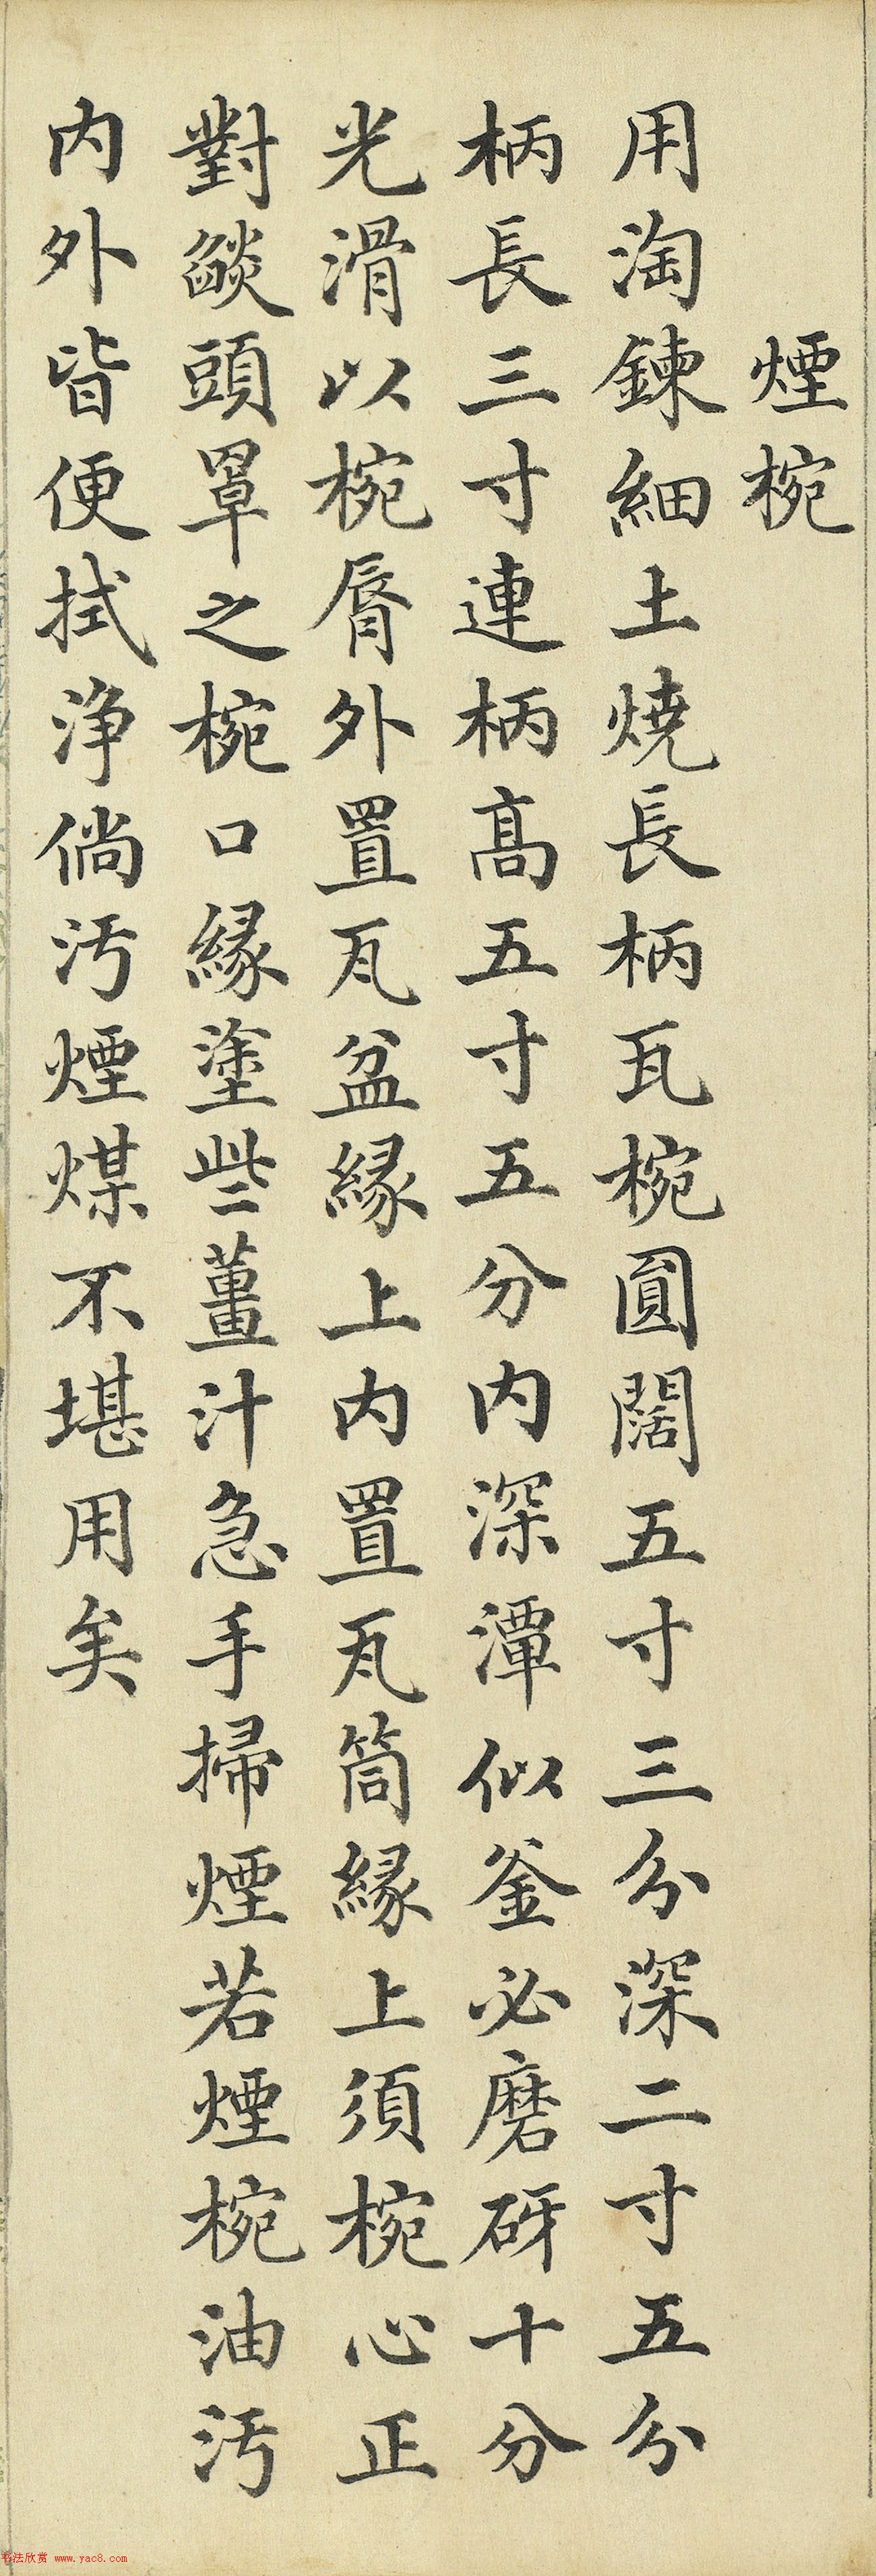 煙椀
用淘鍊細土燒長柄瓦椀圓闊五寸三分深二寸五分
柄長三寸連柄高五寸五分内深潭似釜必磨砑十分
光滑以椀脣外置瓦盆緣上内置瓦筒緣上須椀心正
對燄頭罩之椀口緣塗些薑汁急手掃煙若煙椀油汚
内外皆便拭浄倘汚煙煤不堪用矣
书法欣赏 www.yac8.com